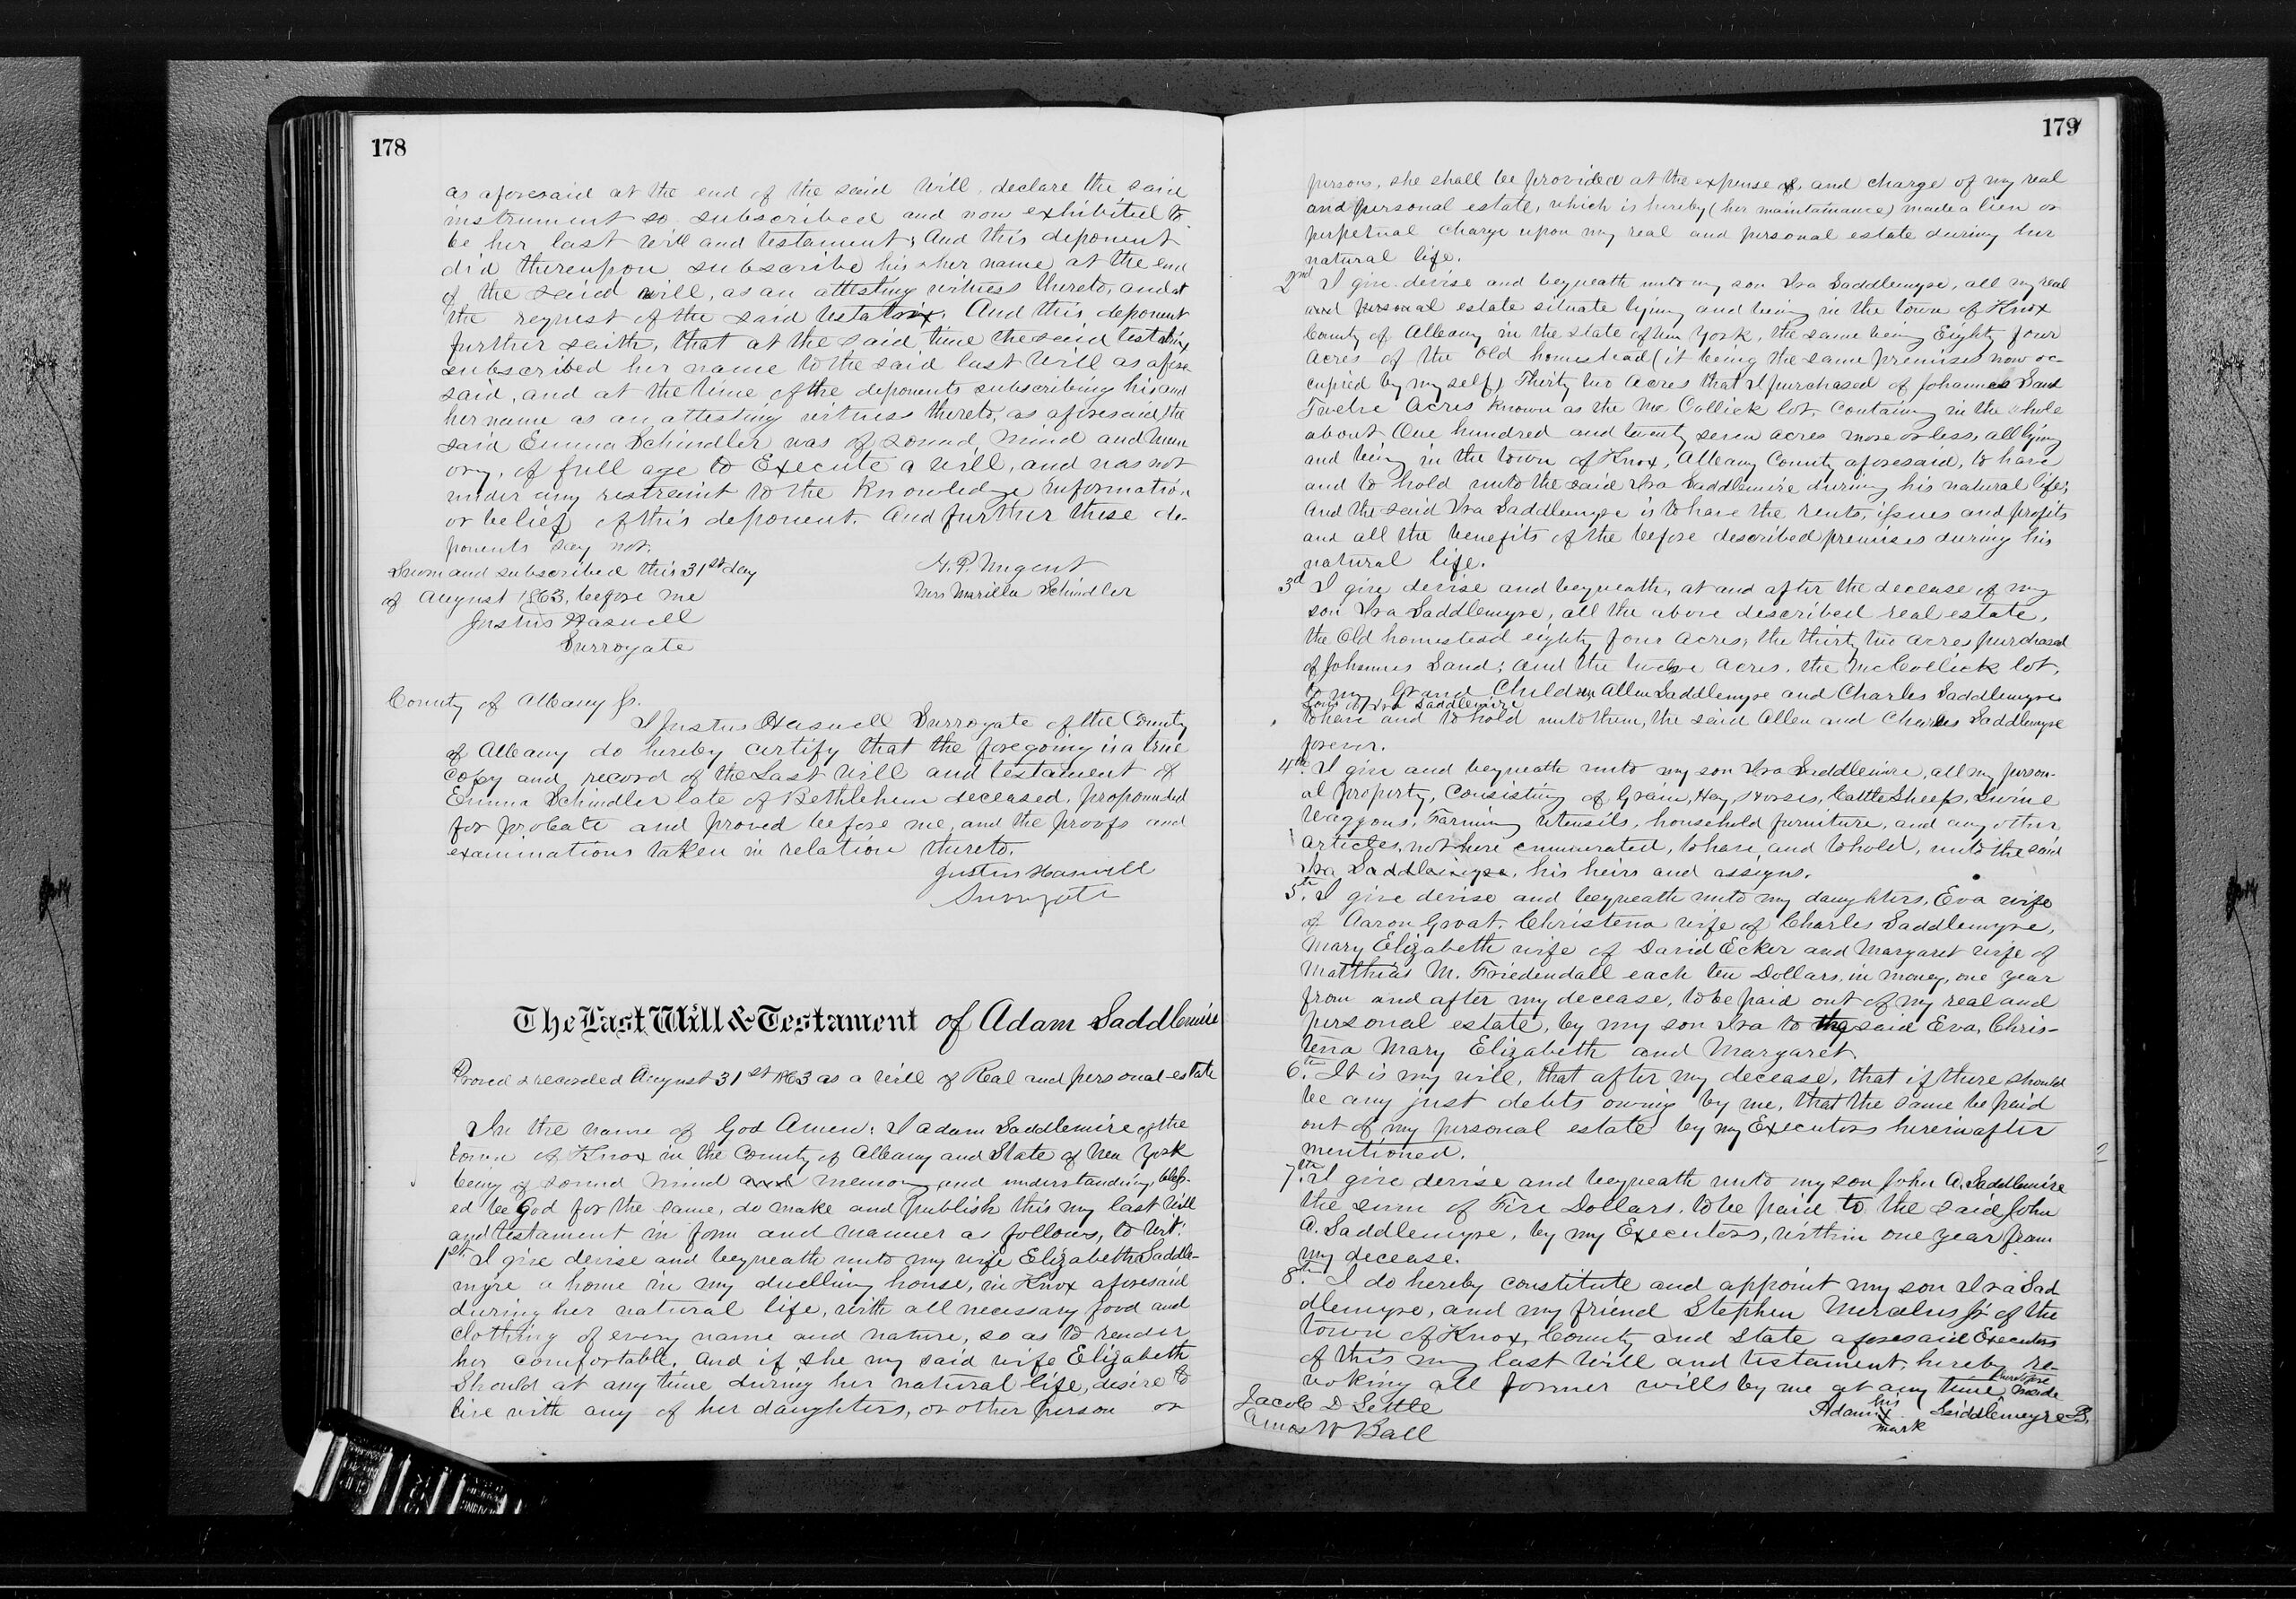 178
as aforesaid at the end of the said Will, declare the said
instrument so subscribed and now exhibited to
be her last Will and testament; And this deponent
did thereupon subscribe his & her name at the end
of the said will, as an attesting witness thereto, and at
the request of the said testatrix. And this deponent
further saith, that at the said time the said testatrix
subscribed her name to the said last Will as afore-
said, and at the time of the deponents subscribing his and
her name as an attesting witness thereto, as aforesaid the
said Emma Schindler was of sound mind and mem
ory, of full age to Execute a Will, and was not
under any restraint to the Knowledge information
or belief of this deponent. And further these de-
ponents say not.
Sworn and subscribed this 31st day
of August 1863, before me
Justus Haswell
Surrogate
H. P. Nugent
Mrs Marilla Schindler
County of Albany Ss.
I Justus Haswell Surrogate of the County
of Albany do hereby certify that the foregoing is a true
copy and record of the Last Will and testament of
Emma Schindler late of Bethlehem deceased, propounded
for probate and proved before me, and the proofs and
examinations taken in relation thereto.
Justus Haswell
Surrogate
The Last Will & Testament of Adam Saddlemire
Proved & recorded August 31st 1863 as a Will of Real and personal estate
In the name of God Amen: I adam Saddlemire of the
town of Knox in the County of Albany and State of New York
being of sound mind and memory and understanding, bless-
ed be God for the same, do make and publish this my last Will
and testament in form and manner as follows, to wit:
1st I give devise and bequeath unto my wife Elizabeth Saddle-
myre a home in my dwelling house, in Knox aforesaid
during her natural life, with all necessary food and
clothing of every name and nature, so as to render
her comfortable. And if she my said wife Elizabeth
Should at any time during her natural life, desire to
live with any of her daughters, or other person or
179
persons, she shall be provided at the expense and charge of my real
and personal estate, which is hereby (her maintainance) made a lien or
perpetual charge upon my real and personal estate during her
natural life.
2nd I give devise and bequeath unto my son Ira Saddlemyre, all my real
and personal estate situate lying and being in the town of Knox
County of Albany in the state of New York, the same being Eighty four
Acres of the Old homestead (it being the same premises now oc-
cupied by myself) Thirty two Acres that I purchased of Johannes Sand
Twelve Acres known as the Mc Collick lot, Containing in the whole
about One hundred and twenty seven acres more or less, all lying
and being in the town of Knox, Albany County aforesaid, to have
and to hold unto the said Ira Saddlemire during his natural life;
And the said Ira Saddlemyre is to have the rents, issues and profits
and all the benefits of the before described premises during his
natural life.
3d I give devise and bequeath, at and after the decease of my
son Ira Saddlemyre, all the above described real estate,
the Old homestead eighty four Acres, the thirty two acres purchased
of Johannes Sand; and the twelve acres, the McCollick lot,
to my Grand Children Allen Saddlemyre and Charles Saddlemyre
Sons of Ira Saddlemire
to have and to hold unto them, the said Allen and Charles Saddlemyre
forever.
4th. I give and bequeath unto my son Ira Saddlemire, all my person-
al property, Consisting of Grain, Hay, Horses, Cattle Sheep, Swine
Waggons, Farming Utensils, household furniture, and any other
articles, not here enumerated, to have and to hold, unto the said
Ira Saddlemyre, his heirs and assigns.
5th. I give devise and bequeath unto my daughters, Eva wife
of Aaron Groat, Christena wife of Charles Saddlemyre,
Mary Elizabeth wife of David Ecker and Margaret wife of
Matthias M. Friedendall each ten Dollars, in money, one year
from and after my decease, to be paid out of my real and
personal estate, by my son Ira to the said Eva, Chris-
tena Mary Elizabeth and Margaret.
6th. It is my will, that after my decease, that if there should
be any just debts owing by me, that the same be paid
out of my personal estate by my Executors hereinafter
mentioned.
7th. I give devise and bequeath unto my son John A. Saddlemire
the sum of Five Dollars, to be paid to the said John
A. Saddlemyre, by my Executors, within one year from
my decease.
8th. I do hereby constitute and appoint my son Ira Sad
dlemyre, and my friend Stephen Merselus Jr of the
town of Knox, County and State aforesaid Executors
of this my last Will and testament, hereby re-
voking all former wills by me at any time heretofore made
Jacob D Settle
Amos W Ball
his
Adam X Saddlemeyre
mark